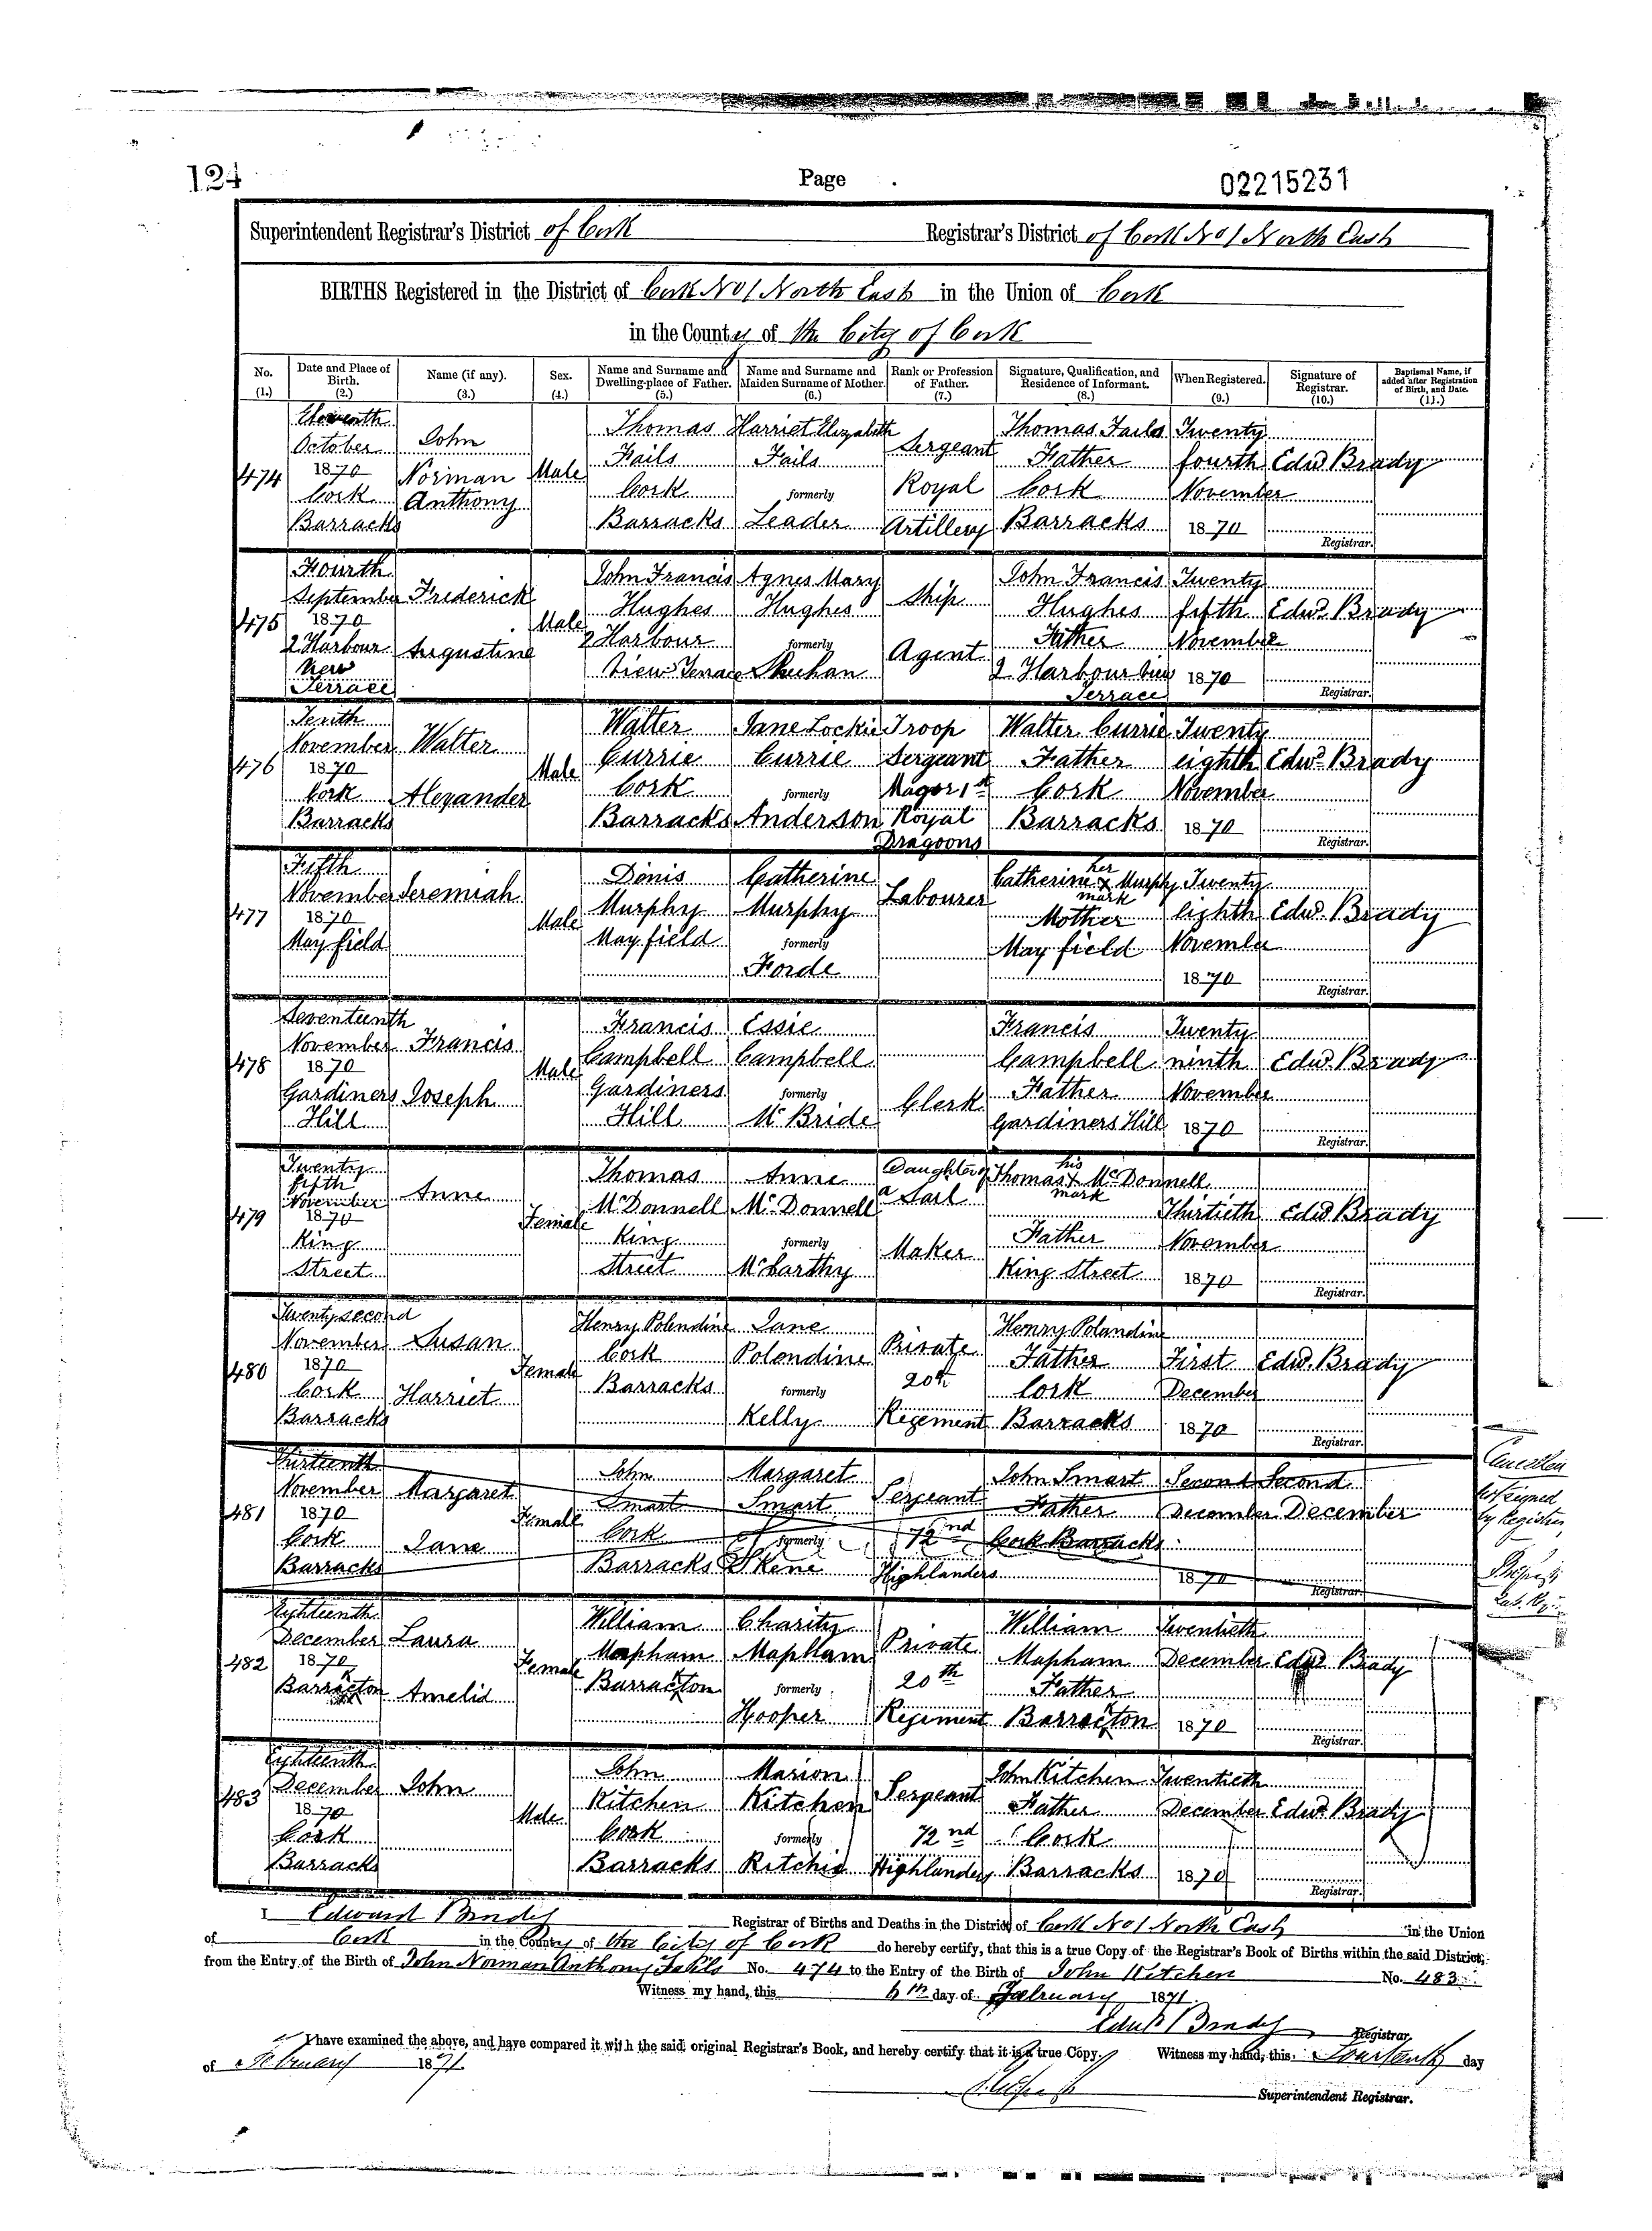 124
Page
02215231
Superintendent Registrar's District of Cork
Registrar's District of Cork No 1 North East
BIRTHS Registered in the District of Cork No 1 North East in the Union of Cork
in the County of the City of Cork
No. (1.)
Date and Place of Birth. (2.)
Name (if any). (3.)
Sex. (4.)
Name and Surname and Dwelling-place of Father. (5.)
Name and Surname and Maiden Surname of Mother. (6.)
Rank or Profession of Father. (7.)
Signature, Qualification, and Residence of Informant. (8.)
When Registered. (9.)
Signature of Registrar. (10.)
Baptismal Name, if added after Registration of Birth, and Date. (11.)
474
Eleventh October 1870 Cork Barracks
John Norman Anthony
Male
Thomas Fails Cork Barracks
Harriet Elizabeth Fails formerly Leader
Sergeant Royal Artillery
Thomas Fails Father Cork Barracks
Twenty fourth November 1870
Edwd Brady Registrar.
475
Fourth September 1870 2 Harbour View Terrace
Frederick Augustine
Male
John Francis Hughes 2 Harbour View Terrace
Agnes Mary Hughes formerly Sheehan
Ship Agent
John Francis Hughes Father 2 Harbour View Terrace
Twenty fifth November 1870
Edwd Brady Registrar.
476
Tenth November 1870 Cork Barracks
Walter Alexander
Male
Walter Currie Cork Barracks
Jane Lockie Currie formerly Anderson
Troop Sergeant Magor 1st Royal Dragoons
Walter Currie Father Cork Barracks
Twenty eighth November 1870
Edwd Brady Registrar.
477
Fifth November 1870 Mayfield
Jeremiah
Male
Denis Murphy Mayfield
Catherine Murphy formerly Forde
Labourer
Catherine her x mark Murphy Mother Mayfield
Twenty eighth November 1870
Edwd Brady Registrar.
478
Seventeenth November 1870 Gardiners Hill
Francis Joseph
Male
Francis Campbell Gardiners Hill
Essie Campbell formerly McBride
Clerk
Francis Campbell Father Gardiners Hill
Twenty ninth November 1870
Edwd Brady Registrar.
479
Twenty fifth November 1870 King Street
Anne
Female
Thomas McDonnell King Street
Anne McDonnell formerly McCarthy
Daughter of a Sail Maker
Thomas his x mark McDonnell Father King Street
Thirtieth November 1870
Edwd Brady Registrar.
480
Twenty second November 1870 Cork Barracks
Susan Harriet
Female
Henry Polendine Cork Barracks
Jane Polondine formerly Kelly
Private 20th Regement
Henry Polandine Father Cork Barracks
First December 1870
Edwd Brady Registrar.
481
Thirteenth November 1870 Cork Barracks
Margaret Jane
Female
John Smart Cork Barracks
Margaret Smart formerly Skene
Sergeant 72nd Highlanders
John Smart Father Cork Barracks
Second December 1870
Second December Registrar.
Cancelled
not signed by Registrar,
482
Eighteenth December 1870 Barrackton
Laura Amelia
Female
William Mapham Barrackton
Charity Mapham formerly Hooper
Private 20th Regiment
William Mapham Father Barrackton
Twentieth December 1870
Edwd Brady Registrar.
483
Eighteenth December 1870 Cork Barracks
John
Male
John Kitchen Cork Barracks
Marion Kitchen formerly Ritchie
Sergeant 72nd Highlanders
John Kitchen Father Cork Barracks
Twentieth December 1870
Edwd Brady Registrar.
I Edward Brady Registrar of Births and Deaths in the District of Cork No 1 North East in the Union
of Cork in the County of the City of Cork do hereby certify, that this is a true Copy of the Registrar's Book of Births within the said District,
from the Entry of the Birth of John Norman Anthony Fails No. 474 to the Entry of the Birth of John Kitchen No. 483
Witness my hand, this 6th day of February 1871.
Edwd Brady Registrar.
I have examined the above, and have compared it with the said original Registrar's Book, and hereby certify that it is a true Copy. Witness my hand, this Fourteenth day
of February 1871
Superintendent Registrar.